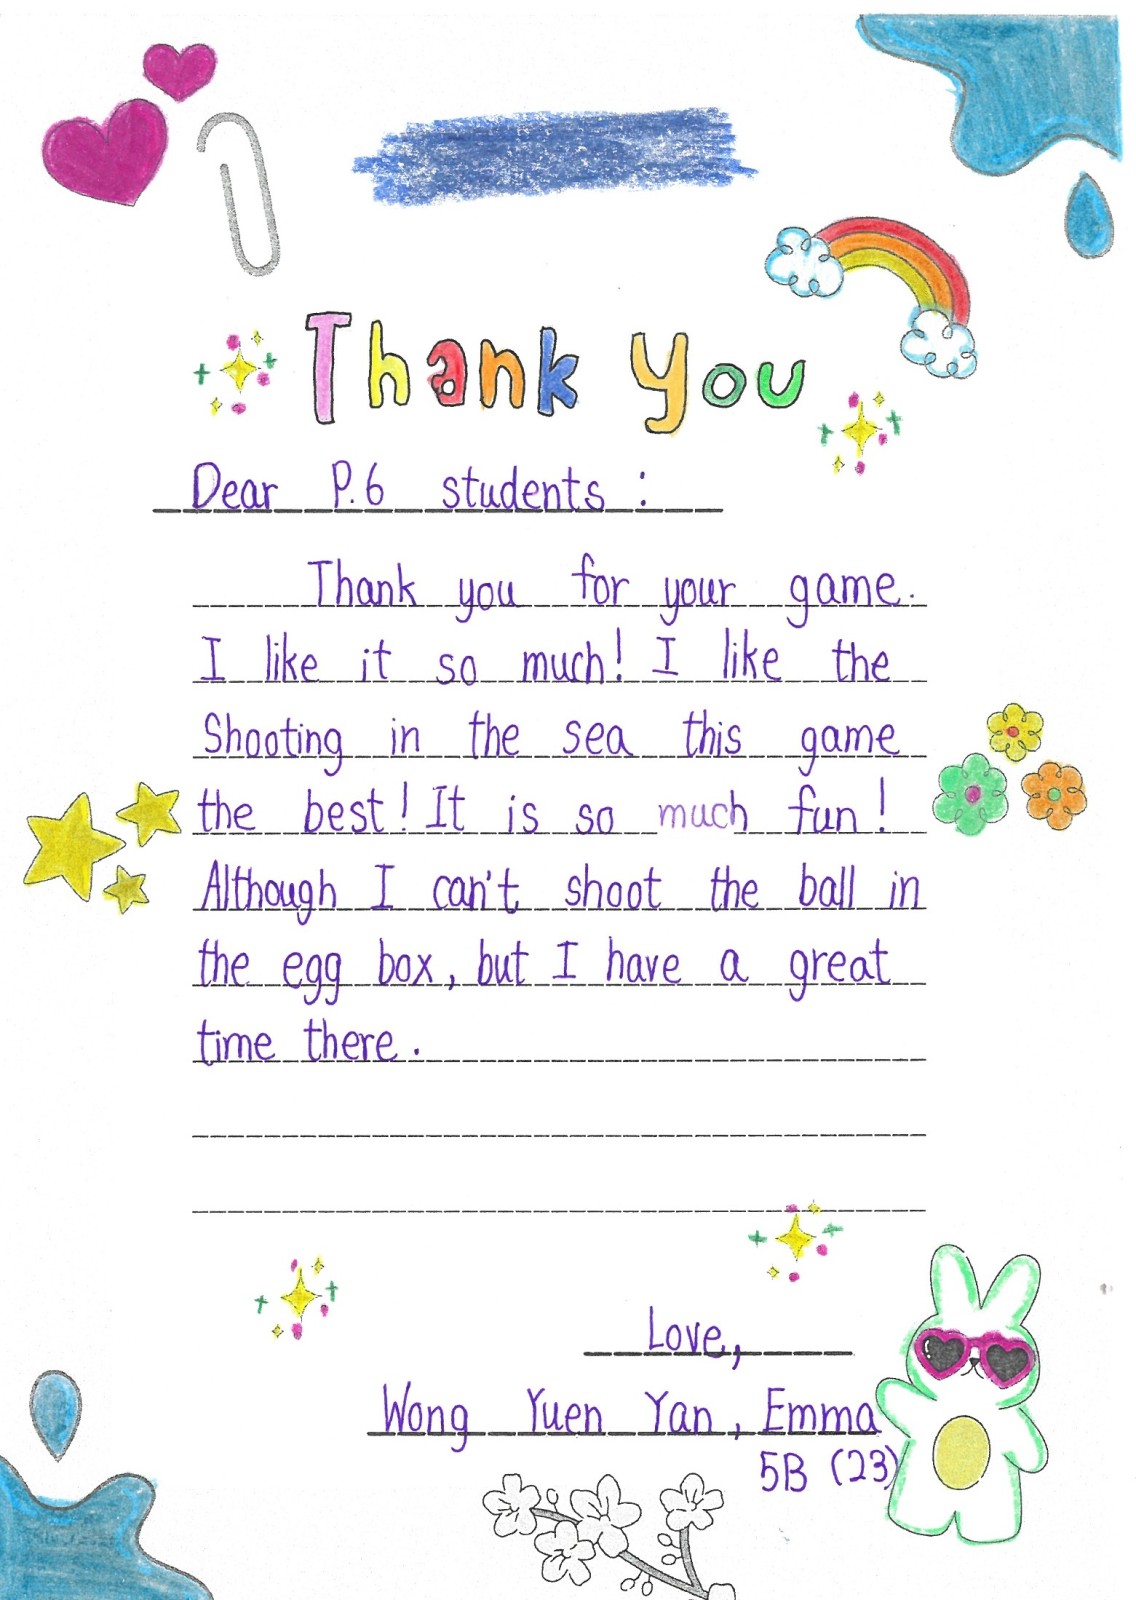 Thank you
Dear P.6 students :
Thank you for your game.
I like it so much! I like the
Shooting in the sea this game
the best! It is so much fun!
Although I can't shoot the ball in
the egg box, but I have a great
time there.
Love,
Wong Yuen Yan, Emma
5B (23)